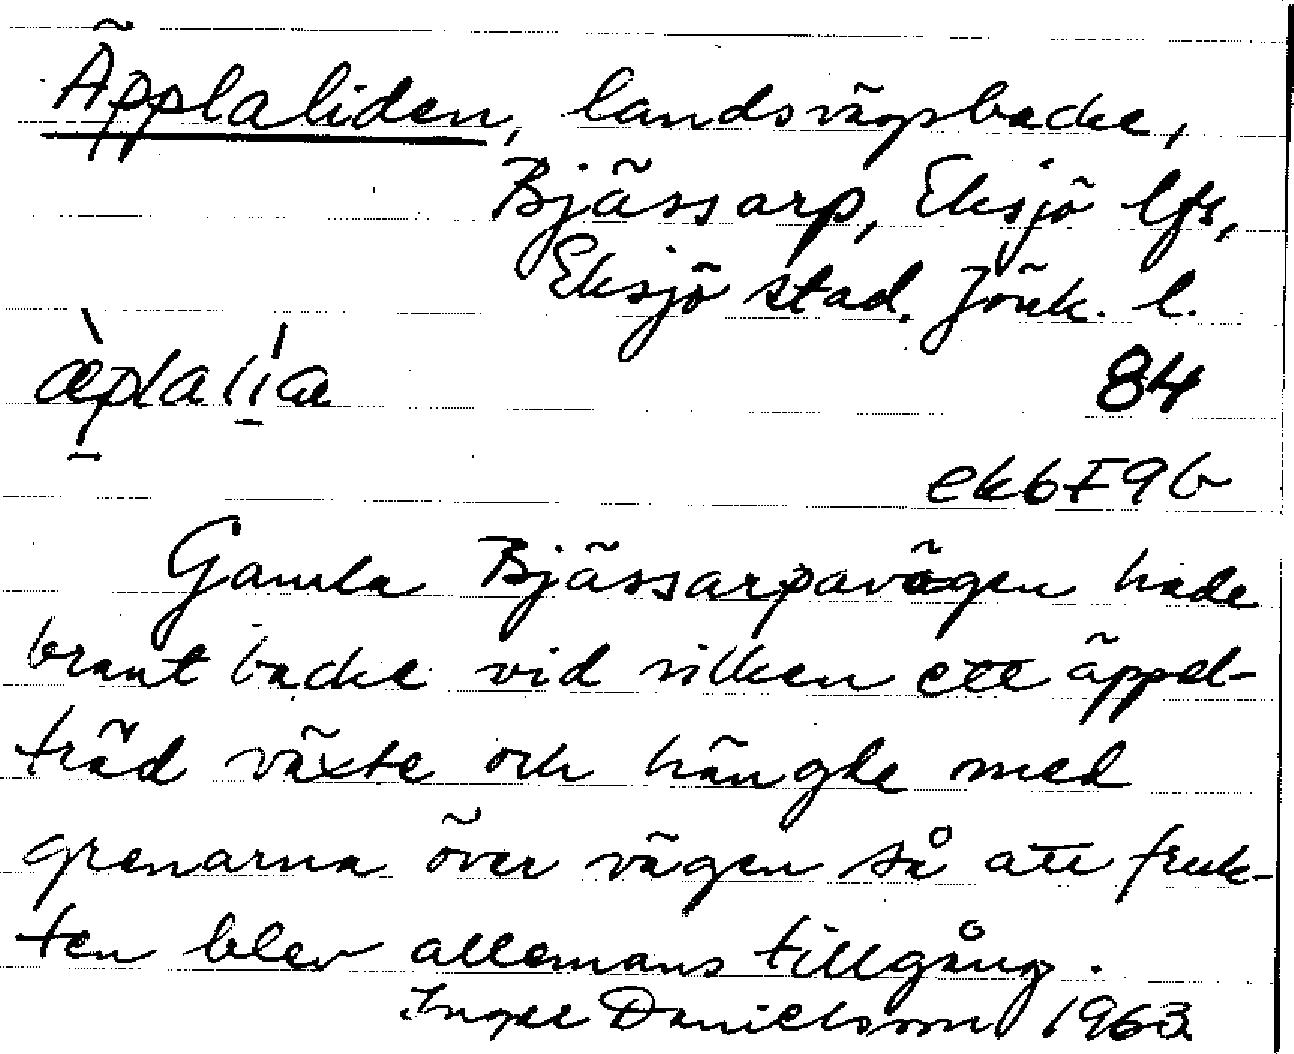 Äpplaliden, landsvägsbacke,
Bjässarp, Eksjö lfs,
Eksjö stad, Jönk. l.
æ̀plalíæ
84
ek6F9b
Gamla Bjässarpavägen hade
brant backe vid vilken ett äppel-
träd växte och hängde med
grenarna över vägen så att fruk-
ten blev allemans tillgång.
Ingel Danielsson 1963.